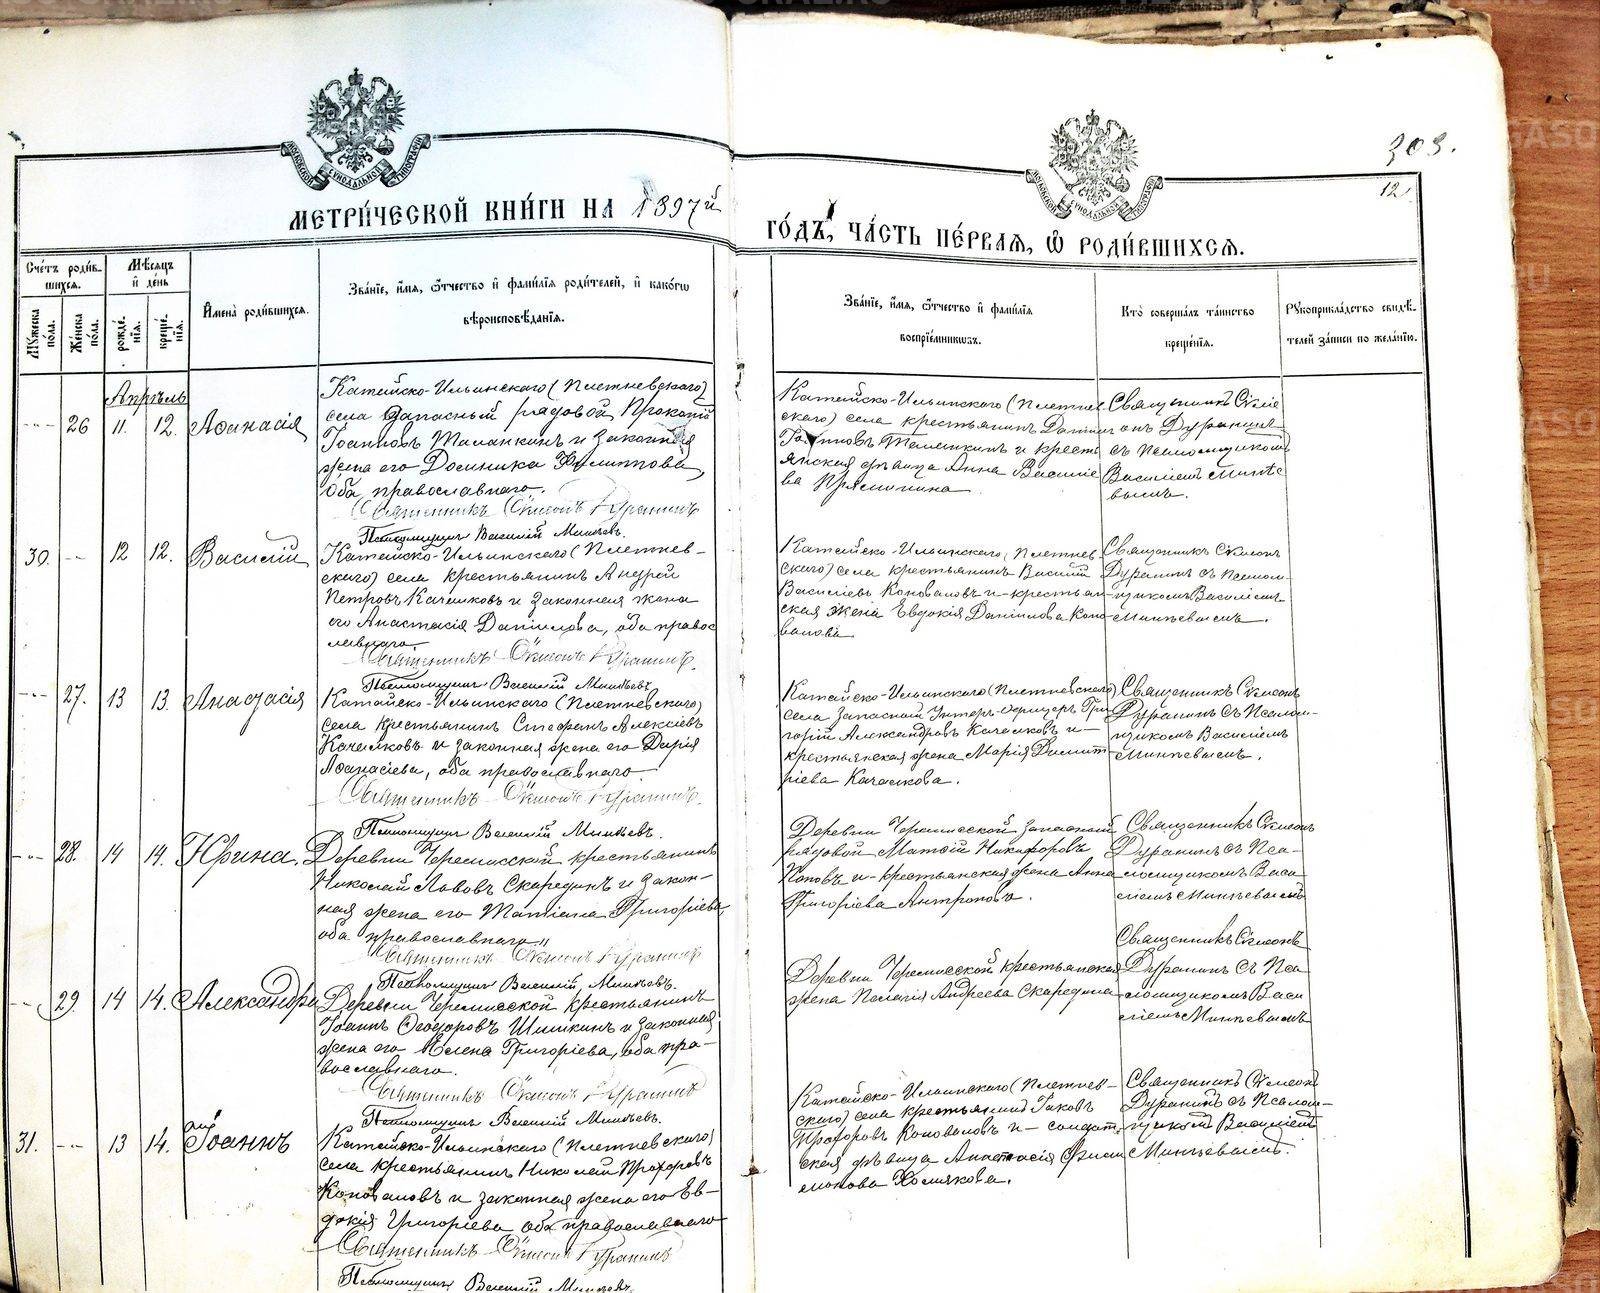 303.
12.
МОСКОВСКОЙ СѴНОДАЛЬНОЙ ТИПОГРАФІИ
МОСКОВСКОЙ СѴНОДАЛЬНОЙ ТИПОГРАФІИ
МЕТРИ́ЧЕСКОЙ КНИ́ГИ НА 1897й
ГО́ДЪ, ЧА́СТЬ ПЕ́РВАЯ, Ѡ҆ РОДИ́ВШИХСЯ.
Сче́тъ роди́в-
шихся.
Мѣсяцъ
и҆ де́нь
Мꙋ́жеска
по́ла.
Же́нска
по́ла.
рожде́-
нїя.
креще́-
нїя.
И҆мена̀ роди́вшихся.
Зва́нїе, и҆́мя, ѻ҆́тчество и҆ фами́лїя роди́телей, и҆ како́гѡ
вѣроисповѣ́данїя.
Зва́нїе, и҆́мя, ѻ҆́тчество и҆ фами́лїя
воспрїе́мникѡвъ.
Кто̀ соверша́лъ та́инство
креще́нїя.
Рꙋкоприкла́дство свидѣ́-
телей за́писи по жела́нїю.
Апрѣль
26 11. 12. Аѳанасія
Катайско-Ильинскаго (Плетневскаго)
села запасный рядовой Прокопій
Іоанновъ Таланкинъ и законная
жена его Домника Филиппова,
оба православнаго.
Священникъ Симеонъ Дуранинъ
Псаломщикъ Василій Минѣевъ.
Катайско-Ильинскаго (Плетнев
скаго) села крестьянинъ Даніил
Іоанновъ и кресть
янская дѣвица Анна Василіе
ва
Священникъ Симе
онъ Дуранинъ
съ псаломщикомъ
Василіемъ Минѣе
вымъ.
30. -- 12 12. Василій
Катайско-Ильинскаго (Плетнев-
скаго) села крестьянинъ Андрей
Петровъ Качалковъ и законная жена
его Анастасія Даніилова, оба право
славнаго
Священникъ Симеонъ Дуранинъ.
Псаломщикъ Василій Минѣевъ
Катайско-Ильинскаго (Плетнев
скаго) села крестьянинъ Василій
Василіевъ Коноваловъ и крестьян
ская жена Евдокія Данілова Коно
валова
Священникъ Симеонъ
Дуранинъ съ псалом-
щикомъ Василіемъ
Минѣевымъ.
27. 13 13. Анастасія
Катайско-Ильинскаго (Плетневскаго)
села крестьянинъ Стефанъ Алексіевъ
Качалковъ и законная жена его Дарія
Аѳанасіева, оба православнаго.
Священникъ Симеонъ Дуранинъ.
Псаломщикъ Василій Минѣевъ.
Катайско-Ильинскаго (Плетневскаго)
села запасный Унтеръ-офицеръ Гри
горій Александровъ Качалковъ и
крестьянская жена Марія Димит
ріева Качалкова.
Священникъ Симеонъ
Дуранинъ съ псалом-
щикомъ Василіемъ
Минѣевымъ.
28. 14 14. Ирина.
Деревни Черемисской крестьянинъ
Николай Львовъ Скарединъ и закон-
ная жена его Татіана Григоріева,
оба православнаго
Священникъ Симеонъ Дуранинъ
Псаломщикъ Василій Минѣевъ.
Деревни Черемисской запасной
рядовой Матѳій Никифоровъ
Поповъ и крестьянская жена Анна
Григоріева Антропова.
Священникъ Симеонъ
Дуранинъ съ Пса-
ломщикомъ Васи
ліемъ Минѣевымъ
29. 14 14. Александра
Деревни Черемисской крестьянинъ
Іоаннъ Ѳеодоровъ Шишкинъ и законная
жена его Елена Григоріева, оба пра-
вославнаго.
Священникъ Симеонъ Дуранинъ
Псаломщикъ Василій Минѣевъ.
Деревни Черемисской крестьянская
жена Пелагія Андреева Скаредина
Священникъ Симеонъ
Дуранинъ съ Пса
ломщикомъ Васи
ліемъ Минѣевымъ
31. -- 13 14. Іоаннъ
Катайско-Ильинскаго (Плетневскаго)
села крестьянинъ Николай Прохоровъ
Коноваловъ и законная жена его Ев-
докія Григоріева оба православнаго
Священникъ Симеонъ Дуранинъ
Псаломщикъ Василій Минѣевъ.
Катайско-Ильинскаго (Плетнев-
скаго) села крестьянинъ Іаковъ
Прохоровъ Коноваловъ и солдат
ская дѣвица Анастасія Фили
монова Хомякова.
Священникъ Симеонъ
Дуранинъ съ Псалом-
щикомъ Василіемъ
Минѣевымъ.